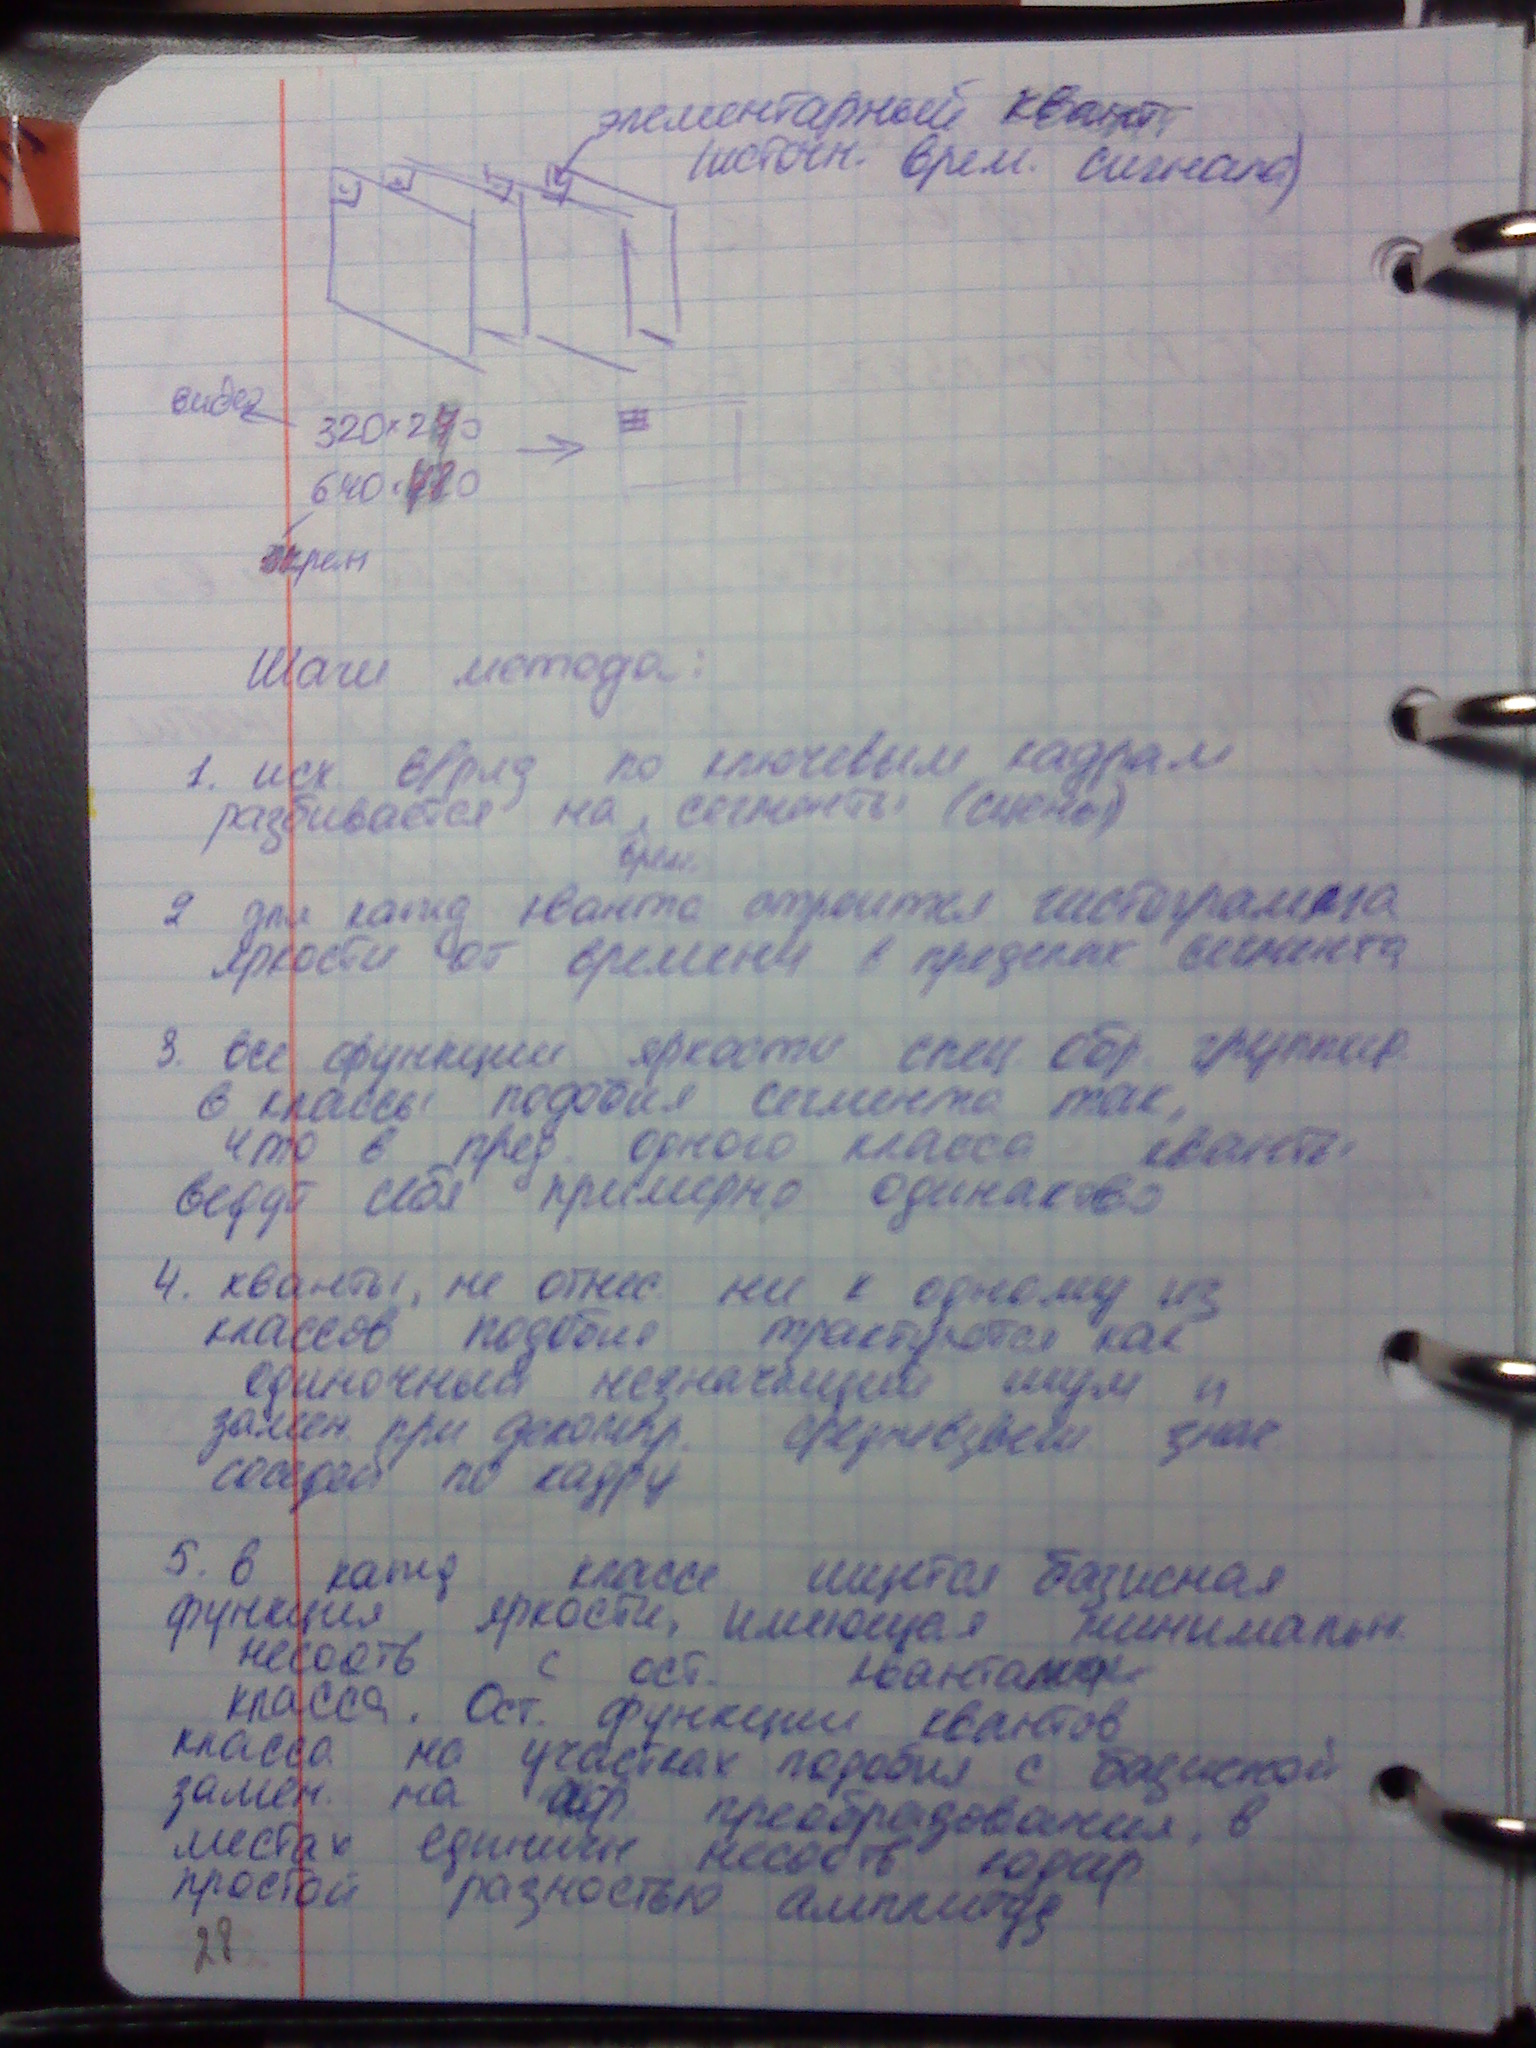 элементарный квант
(источн. врем. сигнала)
видео
320×240
640×480
экран
Шаги метода:
1. исх. в/ряд по ключевым кадрам
разбивается на сегменты (сцены)
врем.
2 для кажд кванта строится гистограмма
яркости от времени в пределах сегмента
3. все функции яркости спец обр. группир.
в классы подобия сегмента так,
что в пред. одного класса кванты
ведут себя примерно одинаково
4. кванты, не отнес. ни к одному из
классов подобия трактуются как
одиночный незначащий шум и
замен. при декомпр. средневзвеш знач
соседей по кадру
5. в кажд классе ищется базисная
функция яркости, имеющая минимальн.
несоотв с ост. квантами
класса. Ост. функции квантов
класса на участках подобия с базисной
замен. на преобразования, в
местах единичн несоотв кодир
простой разностью амплитуд
28